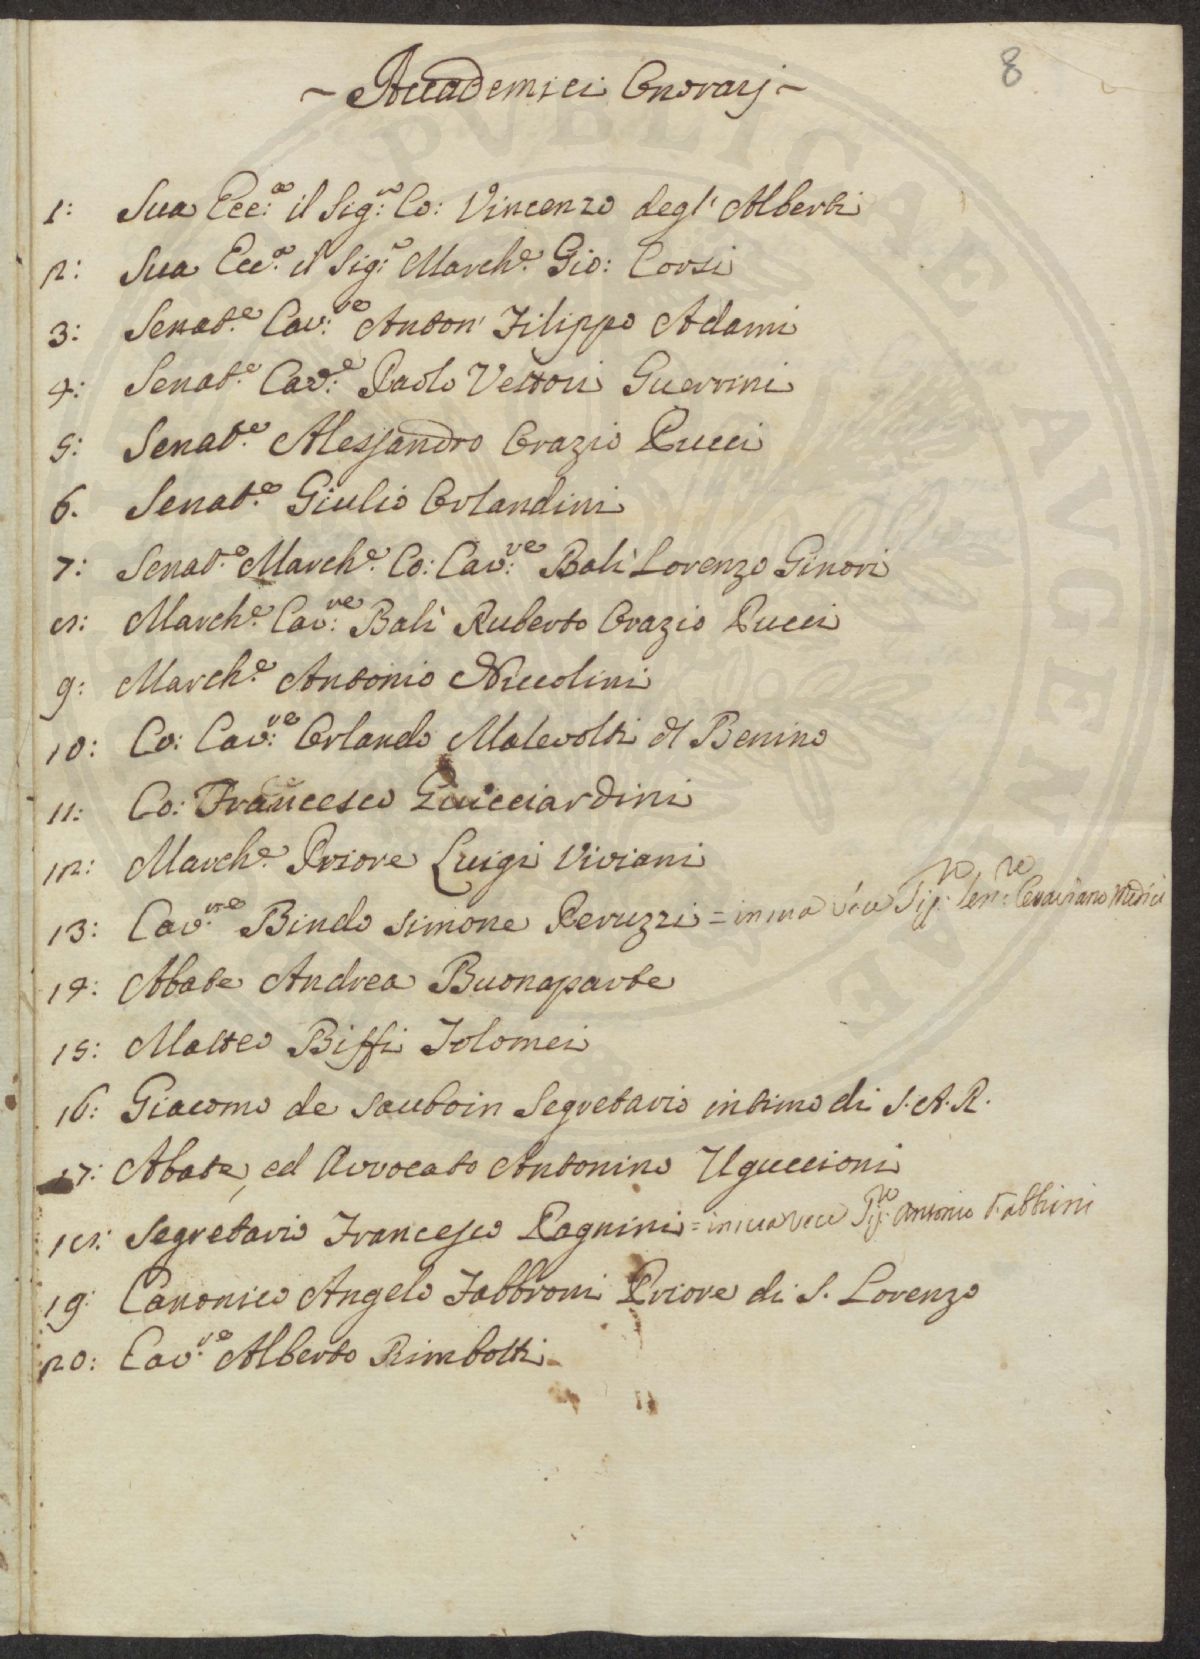 8
~ Accademici Onorarj ~
1: Sua Ecc:ª il Sig:re Co: Vincenzo degl' Alberti
2: Sua Ecc:ª il Sig:re March:e Gio: Corsi
3: Senat:e Cav:re Anton' Filippo Adami
4: Senat:e Cav:e Paolo Vettori Guerrini
5: Senat:e Alessandro Orazio Pucci
6. Senat:e Giulio Orlandini
7: Senat:e March:e Co: Cav:re Balì Lorenzo Ginori
8: March:e Cav:re Balì Ruberto Orazio Pucci
9: March:e Antonio Niccolini
10: Co: Cav:re Orlando Malevolti del Benino
11: Co: Francesco Guicciardini
12: March:e Priore Luigi Viviani
13: Cav:re Bindo Simone Peruzzi = in sua vece Sig:re Sen:re Medici
14: Abate Andrea Buonaparte
15: Matteo Biffi Tolomei
16: Giacomo de Sauboin Segretario intimo di S. A. R.
17: Abate, ed Avvocato Antonino Uguccioni
18: Segretario Francesco Pagnini = in sua vece Sig:re Antonio Fabbrini
19: Canonico Angelo Fabbroni Priore di S. Lorenzo
20: Cav:re Alberto Rimbotti